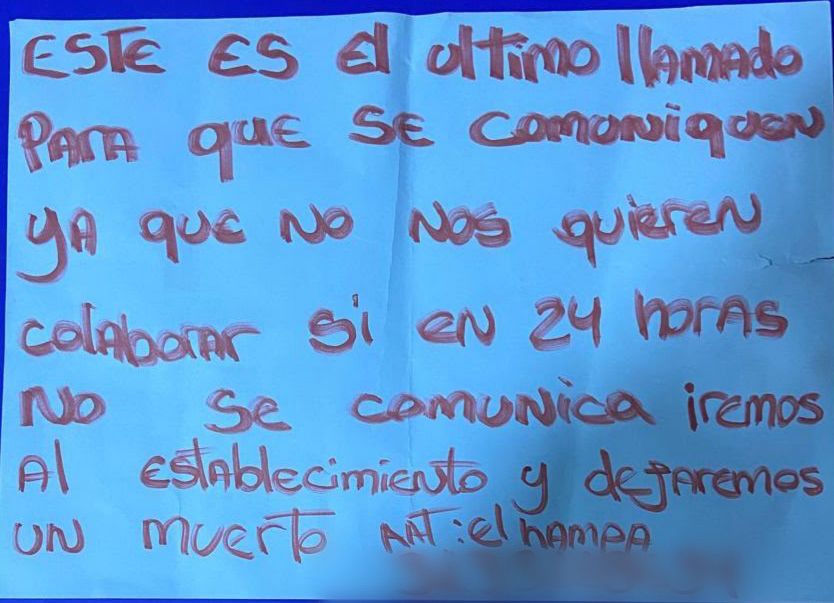 ESTE ES El ultimo llamado
PARA que SE comuniquen
YA que NO NOS quieren
colaborar Si EN 24 horas
NO Se comunica iremos
Al establecimiento y dejaremos
UN muerto AAT: el hampa